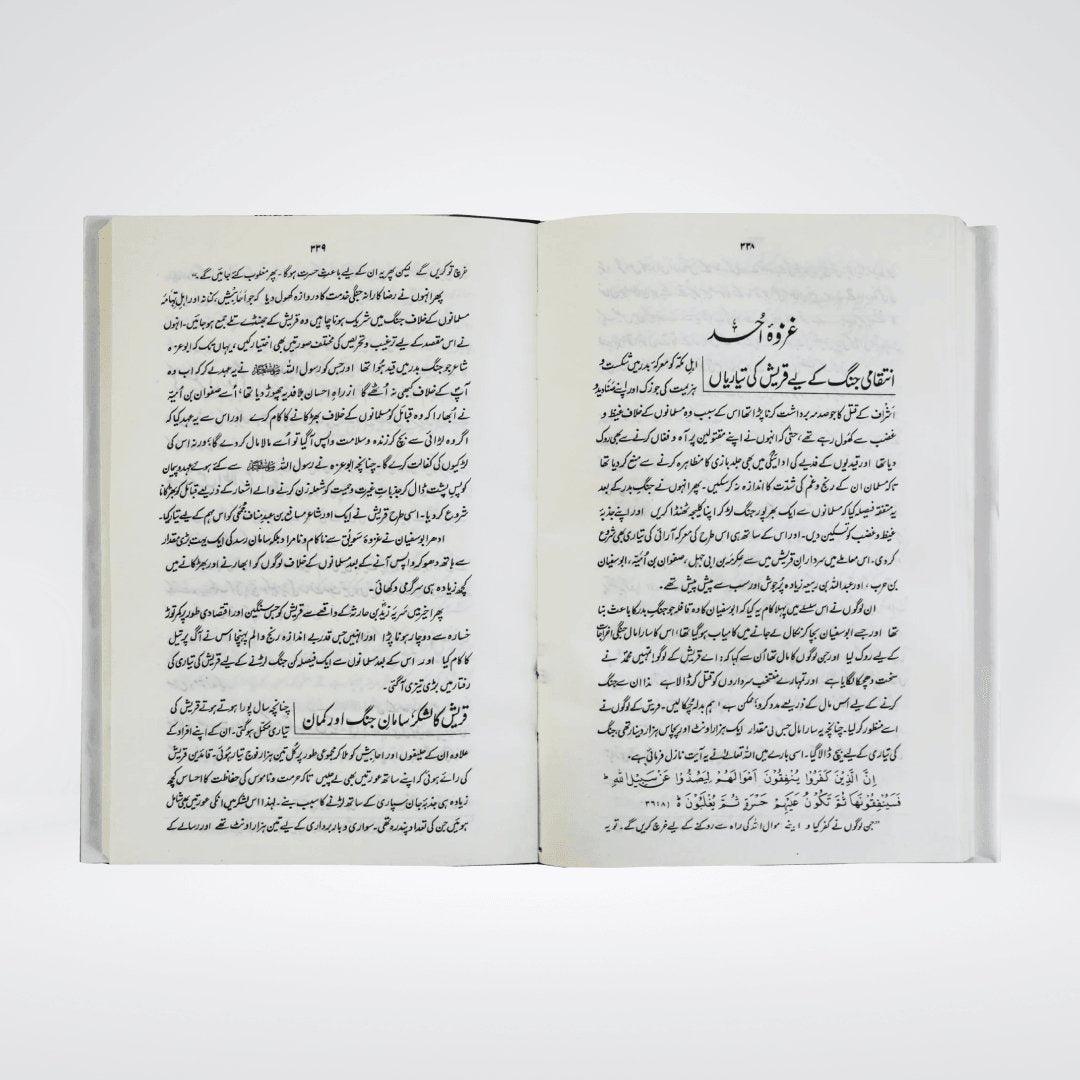 ۳۳۸
غزوۂ اُحد
انتقامی جنگ کے لیے قریش کی تیاریاں
اہلِ مکّہ کو معرکۂ بدر میں شکست و
ہزیمت کی جو زک اور اپنے صَنادید و
اَشراف کے قتل کا جو صدمہ برداشت کرنا پڑا تھا اس کے سبب وہ مسلمانوں کے خلاف غیظ و
غضب سے کھول رہے تھے، حتیٰ کہ انہوں نے اپنے مقتولین پر آہ و فغاں کرنے سے بھی روک
دیا تھا اور قیدیوں کے فدیے کی ادائیگی میں بھی جلد بازی کا مظاہرہ کرنے سے منع کر دیا تھا
تاکہ مسلمان ان کے رنج و غم کی شدّت کا اندازہ نہ کر سکیں۔ پھر انہوں نے جنگِ بدر کے بعد
یہ متفقہ فیصلہ کیا کہ مسلمانوں سے ایک بھرپور جنگ لڑ کر اپنا کلیجہ ٹھنڈا کریں اور اپنے جذبۂ
غیظ و غضب کو تسکین دیں۔ اور اس کے ساتھ ہی اس طرح کی معرکہ آرائی کی تیاری بھی شروع
کر دی۔ اس معاملے میں سردارانِ قریش میں سے عِکرمہ بن ابی جہل، صفوان بن اُمیّہ، ابوسفیان
بن حرب، اور عبداللہ بن ربیعہ زیادہ پُرجوش اور سب سے پیش پیش تھے۔
ان لوگوں نے اس سلسلے میں پہلا کام یہ کیا کہ ابوسفیان کا وہ قافلہ جو جنگِ بدر کا باعث بنا
تھا اور جسے ابوسفیان بچا کر نکال لے جانے میں کامیاب ہو گیا تھا، اس کا سارا مال جنگی اخراجات
کے لیے روک لیا اور جن لوگوں کا مال تھا اُن سے کہا کہ: اے قریش کے لوگو! تمہیں محمّد نے
سخت دھچکا لگایا ہے اور تمہارے منتخب سرداروں کو قتل کر ڈالا ہے لہٰذا ان سے جنگ
کرنے کے لیے اس مال کے ذریعے مدد کرو؛ ممکن ہے ہم بدلہ چُکا لیں۔ قریش کے لوگوں نے
اسے منظور کر لیا۔ چنانچہ یہ سارا مال جس کی مقدار ایک ہزار اونٹ اور پچاس ہزار دینار تھی، جنگ
کی تیاری کے لیے بیچ ڈالا گیا۔ اسی بارے میں اللہ تعالیٰ نے یہ آیت نازل فرمائی ہے۔
اِنَّ الَّذِيْنَ كَفَرُوْا يُنْفِقُوْنَ اَمْوَالَهُمْ لِيَصُدُّوْا عَنْ سَبِيْلِ اللّٰهِ ؕ
فَسَيُنْفِقُوْنَهَا ثُمَّ تَكُوْنُ عَلَيْهِمْ حَسْرَةً ثُمَّ يُغْلَبُوْنَ ؕ (۳۶:۸)
"جن لوگوں نے کفر کیا وہ اپنے اموال اللہ کی راہ سے روکنے کے لیے خرچ کریں گے۔ تو یہ
۳۳۹
خرچ تو کریں گے لیکن پھر یہ ان کے لیے باعثِ حسرت ہوگا۔ پھر مغلوب کئے جائیں گے۔"
پھر انہوں نے رضاکارانہ جنگی خدمت کا دروازہ کھول دیا کہ جو اَحابِیش، کنانہ اور اہلِ تِہامَہ
مسلمانوں کے خلاف جنگ میں شریک ہونا چاہیں وہ قریش کے جھنڈے تلے جمع ہو جائیں۔ انہوں
نے اس مقصد کے لیے ترغیب و تحریص کی مختلف صورتیں بھی اختیار کیں، یہاں تک کہ ابو عزہ
شاعر جو جنگِ بدر میں قید ہوا تھا اور جس کو رسول اللہ ﷺ نے یہ عہد لے کر کہ اب وہ
آپؐ کے خلاف کبھی نہ اُٹھے گا ازراہِ احسان بلا فدیہ چھوڑ دیا تھا، اُسے صفوان بن اُمیّہ
نے اُبھارا کہ وہ قبائل کو مسلمانوں کے خلاف بھڑکانے کا کام کرے اور اس سے یہ عہد کیا کہ
اگر وہ لڑائی سے بچ کر زندہ و سلامت واپس آ گیا تو اُسے مالا مال کر دے گا؛ ورنہ اس کی
لڑکیوں کی کفالت کرے گا۔ چنانچہ ابو عزہ نے رسول اللہ ﷺ سے کئے ہوئے عہد و پیمان
کو پس پشت ڈال کر جذباتِ غیرت و حمیت کو شعلہ زن کرنے والے اشعار کے ذریعے قبائل کو بھڑکانا
شروع کر دیا۔ اسی طرح قریش نے ایک اور شاعر مسافع بن عبد مناف جمحی کو اس مہم کے لیے تیار کیا۔
ادھر ابوسفیان نے غزوۂ سَویق سے ناکام و نامراد بلکہ سامانِ رسد کی ایک بہت بڑی مقدار
سے ہاتھ دھو کر واپس آنے کے بعد مسلمانوں کے خلاف لوگوں کو ابھارنے اور بھڑکانے میں
کچھ زیادہ ہی سرگرمی دکھائی۔
پھر اخیر میں سَرِیّۂ زیدؓ بن حارثہ کے واقعے سے قریش کو جس سنگین اور اقتصادی طور پر کمر توڑ
خسارہ سے دوچار ہونا پڑا اور انہیں جس قدر بے اندازہ رنج و الم پہنچا اس نے آگ پر تیل
کا کام کیا اور اس کے بعد مسلمانوں سے ایک فیصلہ کن جنگ لڑنے کے لیے قریش کی تیاری کی
رفتار میں بڑی تیزی آ گئی۔
قریش کا لشکر، سامانِ جنگ اور کمان
چنانچہ سال پورا ہوتے ہوتے قریش کی
تیاری مکمل ہو گئی۔ ان کے اپنے افراد کے
علاوہ ان کے حلیفوں اور احابیش کو ملا کر مجموعی طور پر کُل تین ہزار فوج تیار ہوئی۔ قائدینِ قریش
کی رائے ہوئی کہ اپنے ساتھ عورتیں بھی لے چلیں تاکہ حرمت و ناموس کی حفاظت کا احساس کچھ
زیادہ ہی جذبۂ جان سپاری کے ساتھ لڑنے کا سبب بنے۔ لہٰذا اس لشکر میں انکی عورتیں بھی شامل
ہوئیں جن کی تعداد پندرہ تھی۔ سواری و بار برداری کے لیے تین ہزار اونٹ تھے اور رسالے کے